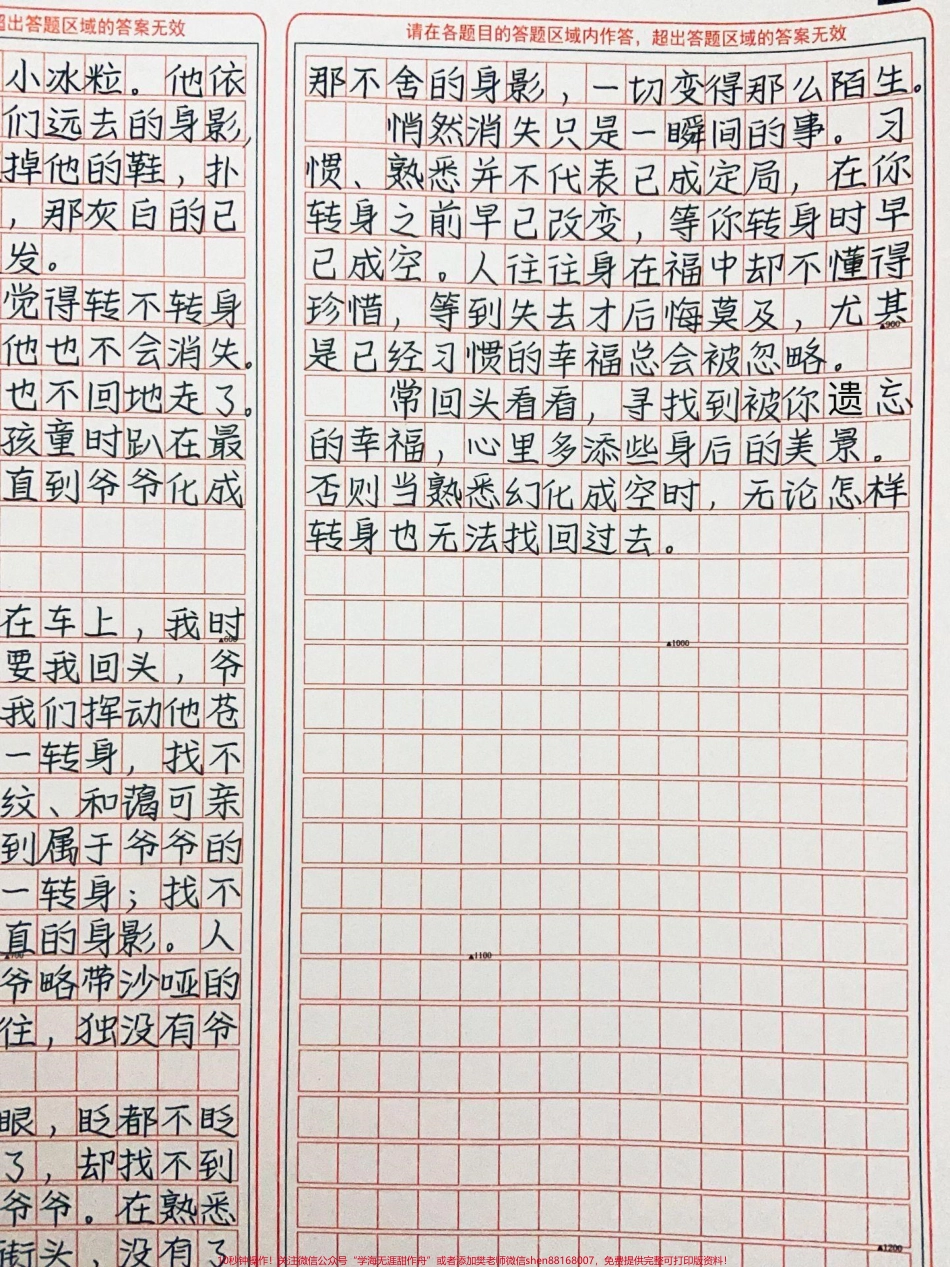 超出答题区域的答案无效
小冰粒。他依
们远去的身影,
掉他的鞋，扑
，那灰白的已
发。
觉得转不转身
他也不会消失。
也不回地走了。
孩童时趴在最
直到爷爷化成
在车上，我时
▲600
要我回头，爷
我们挥动他苍
一转身，找不
纹、和蔼可亲
到属于爷爷的
一转身；找不
直的身影。人
▲700
爷略带沙哑的
往，独没有爷
眼，眨都不眨
了，却找不到
爷爷。在熟悉
街头，没有了
请在各题目的答题区域内作答，超出答题区域的答案无效
那不舍的身影，一切变得那么陌生。
悄然消失只是一瞬间的事。习
惯、熟悉并不代表已成定局，在你
转身之前早已改变，等你转身时早
已成空。人往往身在福中却不懂得
珍惜，等到失去才后悔莫及，尤其
▲900
是已经习惯的幸福总会被忽略。
常回头看看，寻找到被你遗忘
的幸福，心里多添些身后的美景。
否则当熟悉幻化成空时，无论怎样
转身也无法找回过去。
▲1000
▲1100
▲1200
10秒钟操作！关注微信公众号“学海无涯甜作舟”或者添加樊老师微信shen88168007，免费提供完整可打印版资料！